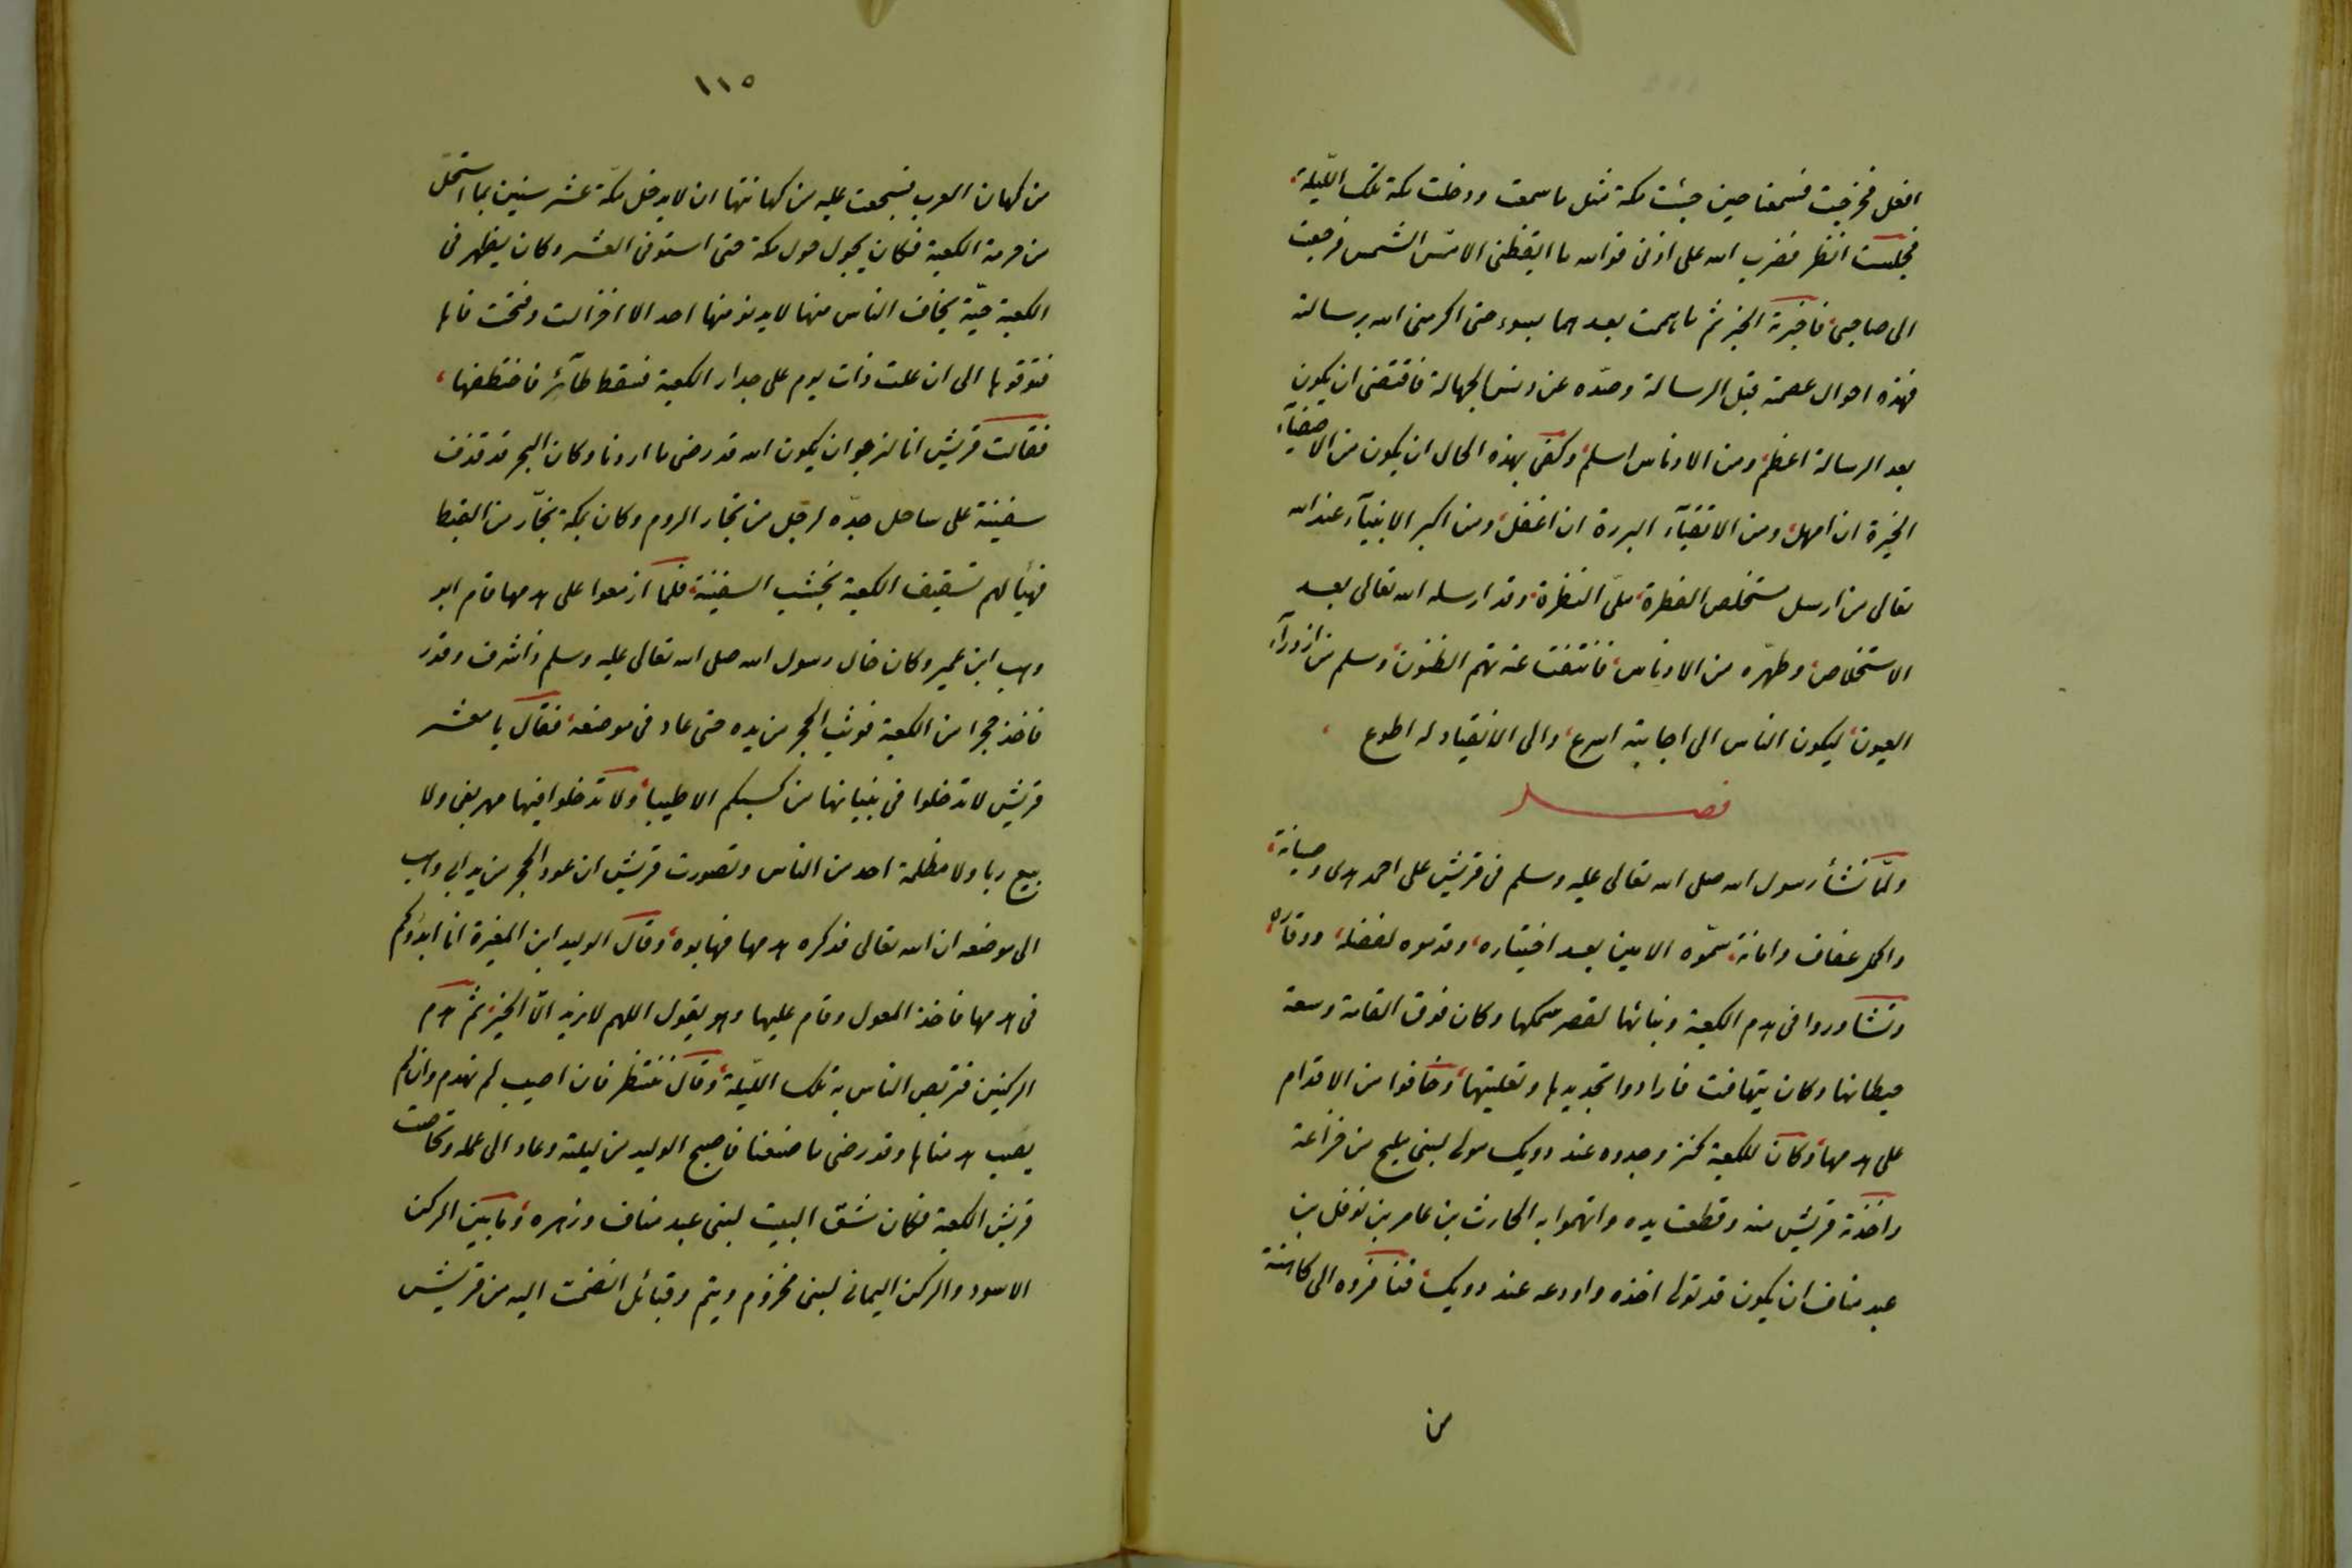 افعل فخرجت فسمعنا حين جئت مكة مثل ما سمعت ودخلت مكة تلك الليلة،
فجلست انظر فضرب الله على اذنى فوالله ما ايقظنى الا مسّ الشمس فرجعت
الى صاحبى، فاخبرته الخبر ثم ما هممت بعدهما بسوء حتى اكرمنى الله برسالته
فهذه احوال عصمته قبل الرسالة وصدّه عن دنس الجهالة فاقتضى ان يكون
بعد الرسالة اعظم، ومن الادناس اسلم، وكفى بهذه الحال ان يكون من الاصفيآء
الخيرة ان امهل، ومن الاتقيآء البررة ان اغفل، ومن اكبر الانبيآء عند الله
تعالى من ارسل مستخلص الفطرة، ملىّ النظرة، وقد ارسله الله تعالى بعد
الاستخلاص، وطهّره من الادناس، فانتفت عنه تهم الظنون، وسلم من ازدرآء
العيون، ليكون الناس الى اجابته اسرع، والى الانقياد له اطوع،
فصل
ولمّا نشأ رسول الله صلى الله تعالى عليه وسلم فى قريش على احمد هدى وصيانة،
واكمل عفاف وامانة، سمّوه الامين بعد اختياره، وقدموه لفضله، ووقاره،
وتشاوروا فى هدم الكعبة وبنائها لقصر سمكها وكان فوق القامة وسعة
حيطانها وكان يتهافت فارادوا تجديدها وتعليتها، وخافوا من الاقدام
على هدمها، وكان للكعبة كنز وجدوه عند دويك مولى لبنى مليح من خزاعة
واخذته قريش منه وقطعت يده واتهموا به الحارث بن عامر بن نوفل بن
عبد مناف ان يكون قد تولى اخذه واودعه عند دويك، فنافروه الى كاهنة
من
١١٥
من كهان العرب فسجعت عليه من كهانتها ان لا يدخل مكّة عشر سنين بما استحلّ
من حرمة الكعبة فكان يجول حول مكة حتى استوفى العشر وكان يظهر فى
الكعبة حيّة يخاف الناس منها لا يدنو منها احد الا اخزالت وفتحت فاها
فتوقوها الى ان علت ذات يوم على جدار الكعبة فسقط طآئر فاختطفها،
فقالت قريش انا لنرجو ان يكون الله قد رضى ما اردنا وكان البحر قد قذف
سفينة على ساحل جدّه لرجل من تجار الروم وكان بمكة نجّار من القبط
فهيأ لهم تسقيف الكعبة بخشب السفينة، فلما ازمعوا على هدمها قام ابو
وهب ابن عمير وكان خال رسول الله صلى الله تعالى عليه وسلم ذا شرف وقدر
فاخذ حجرا من الكعبة فوثب الحجر من يده حتى عاد فى موضعه، فقال يا معشر
قريش لا تدخلوا فى بنيانها من كسبكم الا طيبا، ولا تدخلوا فيها مهر بغى ولا
بيع ربا ولا مظلمة احد من الناس وتصورت قريش ان عود الحجر من يد ابى وهب
الى موضعه ان الله تعالى قد كره هدمها فهابوه، وقال الوليد ابن المغيرة انا ابدؤكم
فى هدمها فاخذ المعول وقام عليها وهو يقول اللهم لا نريد الّا الخير، ثم هدم
الركنين فتربص الناس به تلك الليّلة، وقال ننتظر فان اصيب لم نهدم وان لم
يصب هدمناها وقد رضى ما صنعنا فاصبح الوليد من ليلته وعاد الى عمله وتحاصت
قريش الكعبة فكان شق البيت لبنى عبد مناف وزهره، وما بين الركن
الاسود والركن اليمانى لبنى مخزوم وتيم وقبائل انضمت اليه من قريش